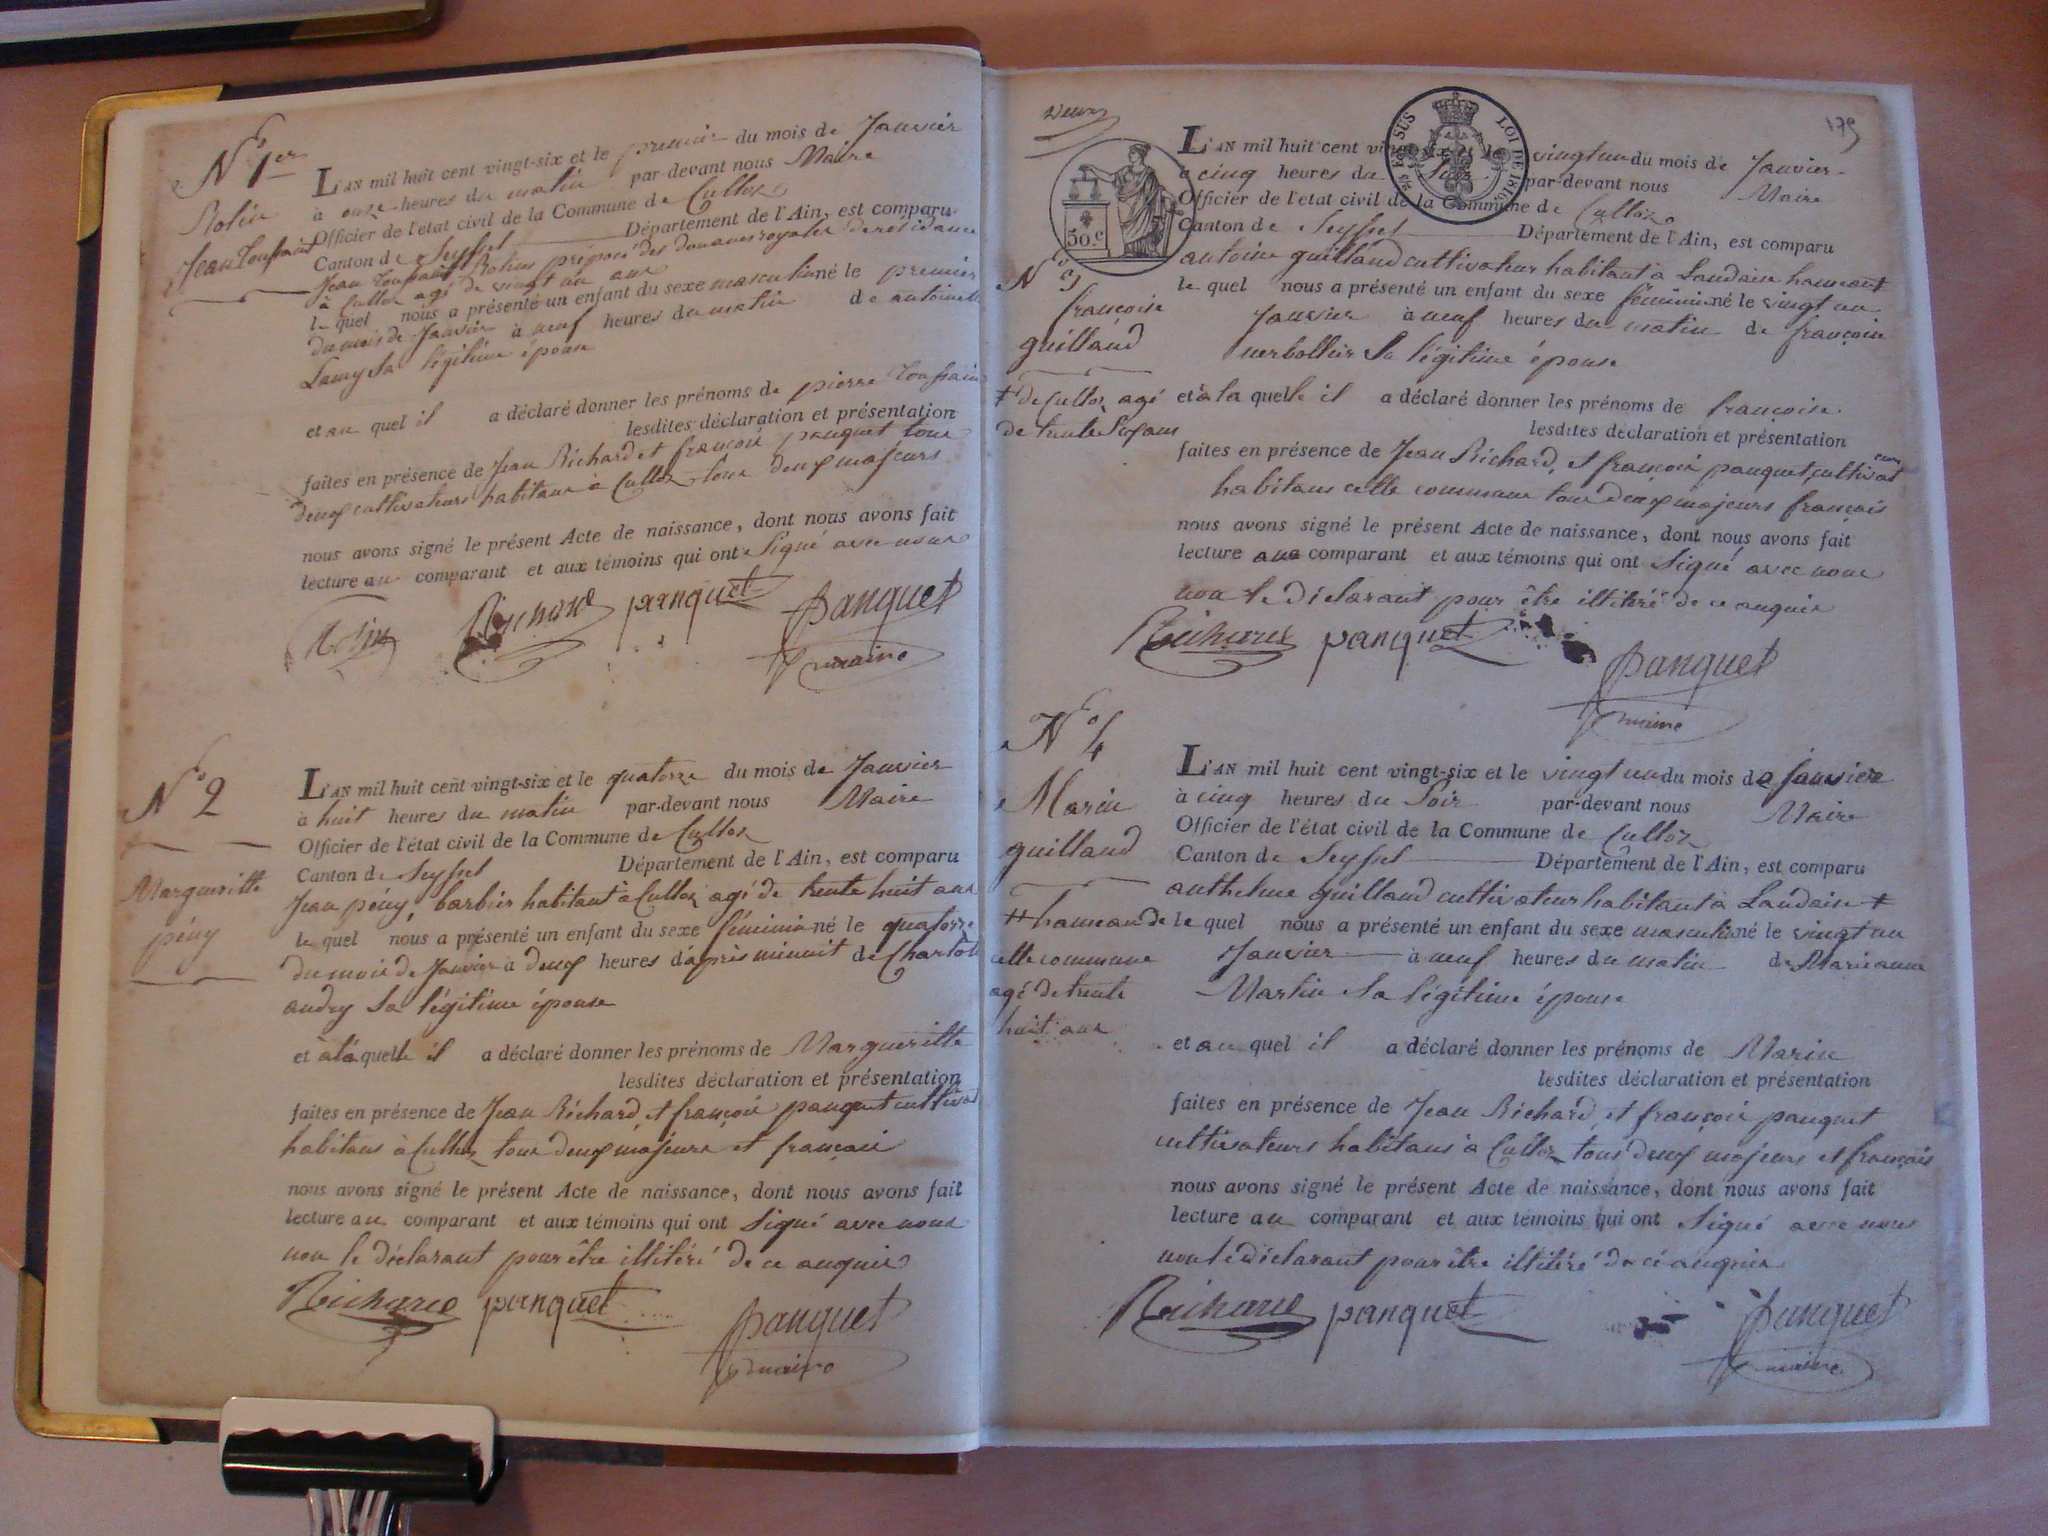 N° 1er
Rolin
Jean Toussaint
L'AN mil huit cent vingt-six et le premier du mois de Janvier
à onze heures du matin par-devant nous Maire
Officier de l'état civil de la Commune de Culloz
Canton de Seyssel Département de l'Ain, est comparu
Jean Toussaint Rolin préposé des douanes royales de résidance
à Culloz agé de vingt un ans
le quel nous a présenté un enfant du sexe masculin né le premier
du mois de Janvier à neuf heures du matin de antoinette
Lamy sa légitime épouse
et au quel il a déclaré donner les prénoms de pierre Toussaint
lesdites déclaration et présentation
faites en présence de Jean Richard et françois panquet tous
deux cultivateurs habitans à Culloz tous deux majeurs
nous avons signé le présent Acte de naissance, dont nous avons fait
lecture au comparant et aux témoins qui ont signé avec nous
Rolin Richard panquet panquet
maire
N° 2
Margueritte
pény
L'AN mil huit cent vingt-six et le quatorze du mois de Janvier
à huit heures du matin par-devant nous Maire
Officier de l'état civil de la Commune de Culloz
Canton de Seyssel Département de l'Ain, est comparu
Jean pény, barbier habitant à Culloz agé de trente huit ans
le quel nous a présenté un enfant du sexe féminin né le quatorze
du mois de Janvier à deux heures d'après minuit de Charlotte
andry sa légitime épouse
et à la quelle il a déclaré donner les prénoms de Margueritte
lesdites déclaration et présentation
faites en présence de Jean Richard, et françois panquet cultivat
habitans à Culloz tous deux majeurs et français
nous avons signé le présent Acte de naissance, dont nous avons fait
lecture au comparant et aux témoins qui ont signé avec nous
non le déclarant pour être illitéré de ce anquis
Richard panquet panquet
maire
179
50.c
SUS LOI DE 1816
N° 3
françoise
guilland
+ de Culloz agé
de trente six ans
L'AN mil huit cent vingt-six et le vingt un du mois de Janvier
à cinq heures du Soir par-devant nous Maire
Officier de l'etat civil de la Commune de Culloz
Canton de Seyssel Département de l'Ain, est comparu
antoine guilland cultivateur habitant à Landaise hameau +
le quel nous a présenté un enfant du sexe féminin né le vingt un
Janvier à neuf heures du matin de françoise
verbollier sa légitime épouse
et à la quelle il a déclaré donner les prénoms de françoise
lesdites déclaration et présentation
faites en présence de Jean Richard, et françois panquet cultivateurs
habitans cette commune tous deux majeurs français
nous avons signé le présent Acte de naissance, dont nous avons fait
lecture au comparant et aux témoins qui ont signé avec nous
non le déclarant pour être illitéré de ce anquis
Richard panquet panquet
maire
N° 4
Marin
guilland
+ hameau de
cette commune
agé de trente
huit ans
L'AN mil huit cent vingt-six et le vingt un du mois de Janvier
à cinq heures du Soir par-devant nous Maire
Officier de l'état civil de la Commune de Culloz
Canton de Seyssel Département de l'Ain, est comparu
anthelme guilland cultivateur habitant à Landaise +
le quel nous a présenté un enfant du sexe masculin né le vingt un
Janvier à neuf heures du matin de Marieanne
Martin sa légitime épouse
et au quel il a déclaré donner les prénoms de Marin
lesdites déclaration et présentation
faites en présence de Jean Richard, et françois panquet
cultivateurs habitans à Culloz tous deux majeurs et français
nous avons signé le présent Acte de naissance, dont nous avons fait
lecture au comparant et aux témoins qui ont signé avec nous
non le déclarant pour être illitéré de ce anquis
Richard panquet panquet
maire